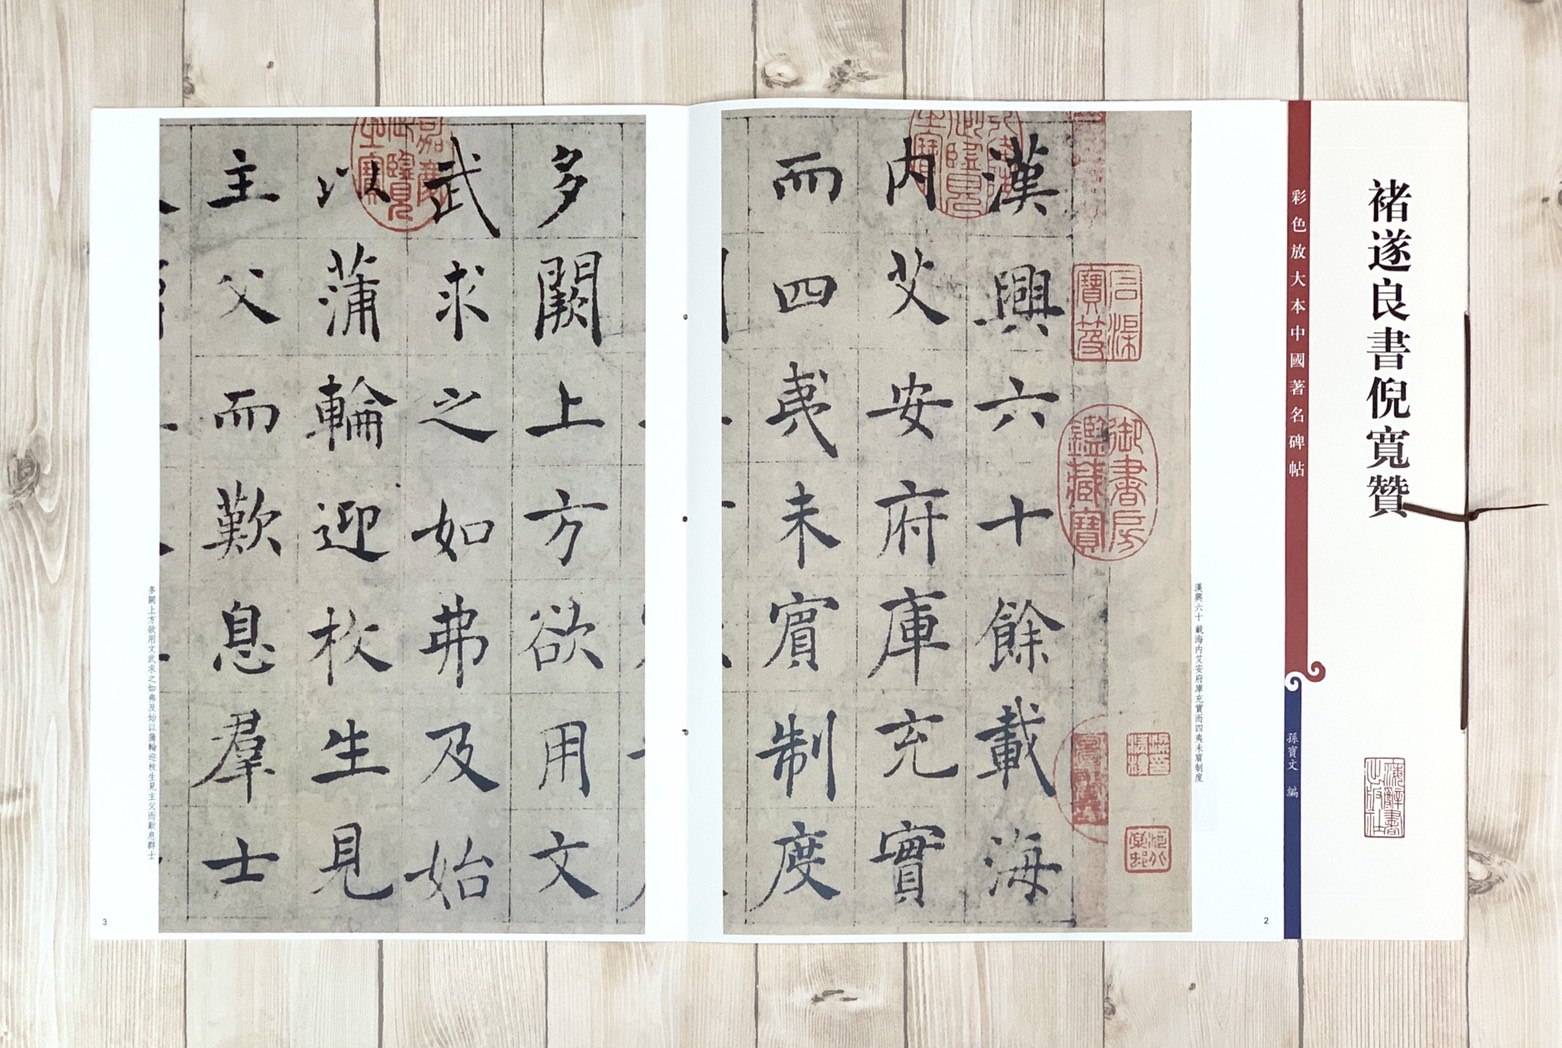 褚遂良書倪寬贊
上海辭書出版社
彩色放大本中國著名碑帖
孫寶文 編
漢興六十 載海内艾安府庫充實而四夷未賓制度
石渠寶笈
御書房鑑藏寶
漢興六十餘載海
内艾安府庫充實
而四夷未賓制度
2
多闕上方欲用文
武求之如弗及始
嘉慶御覽之寶
以蒲輪迎枚生見
主父而歎息羣士
多闕上方欲用文武求之如弗及始以蒲輪迎枚生見主父而歎息群士
3